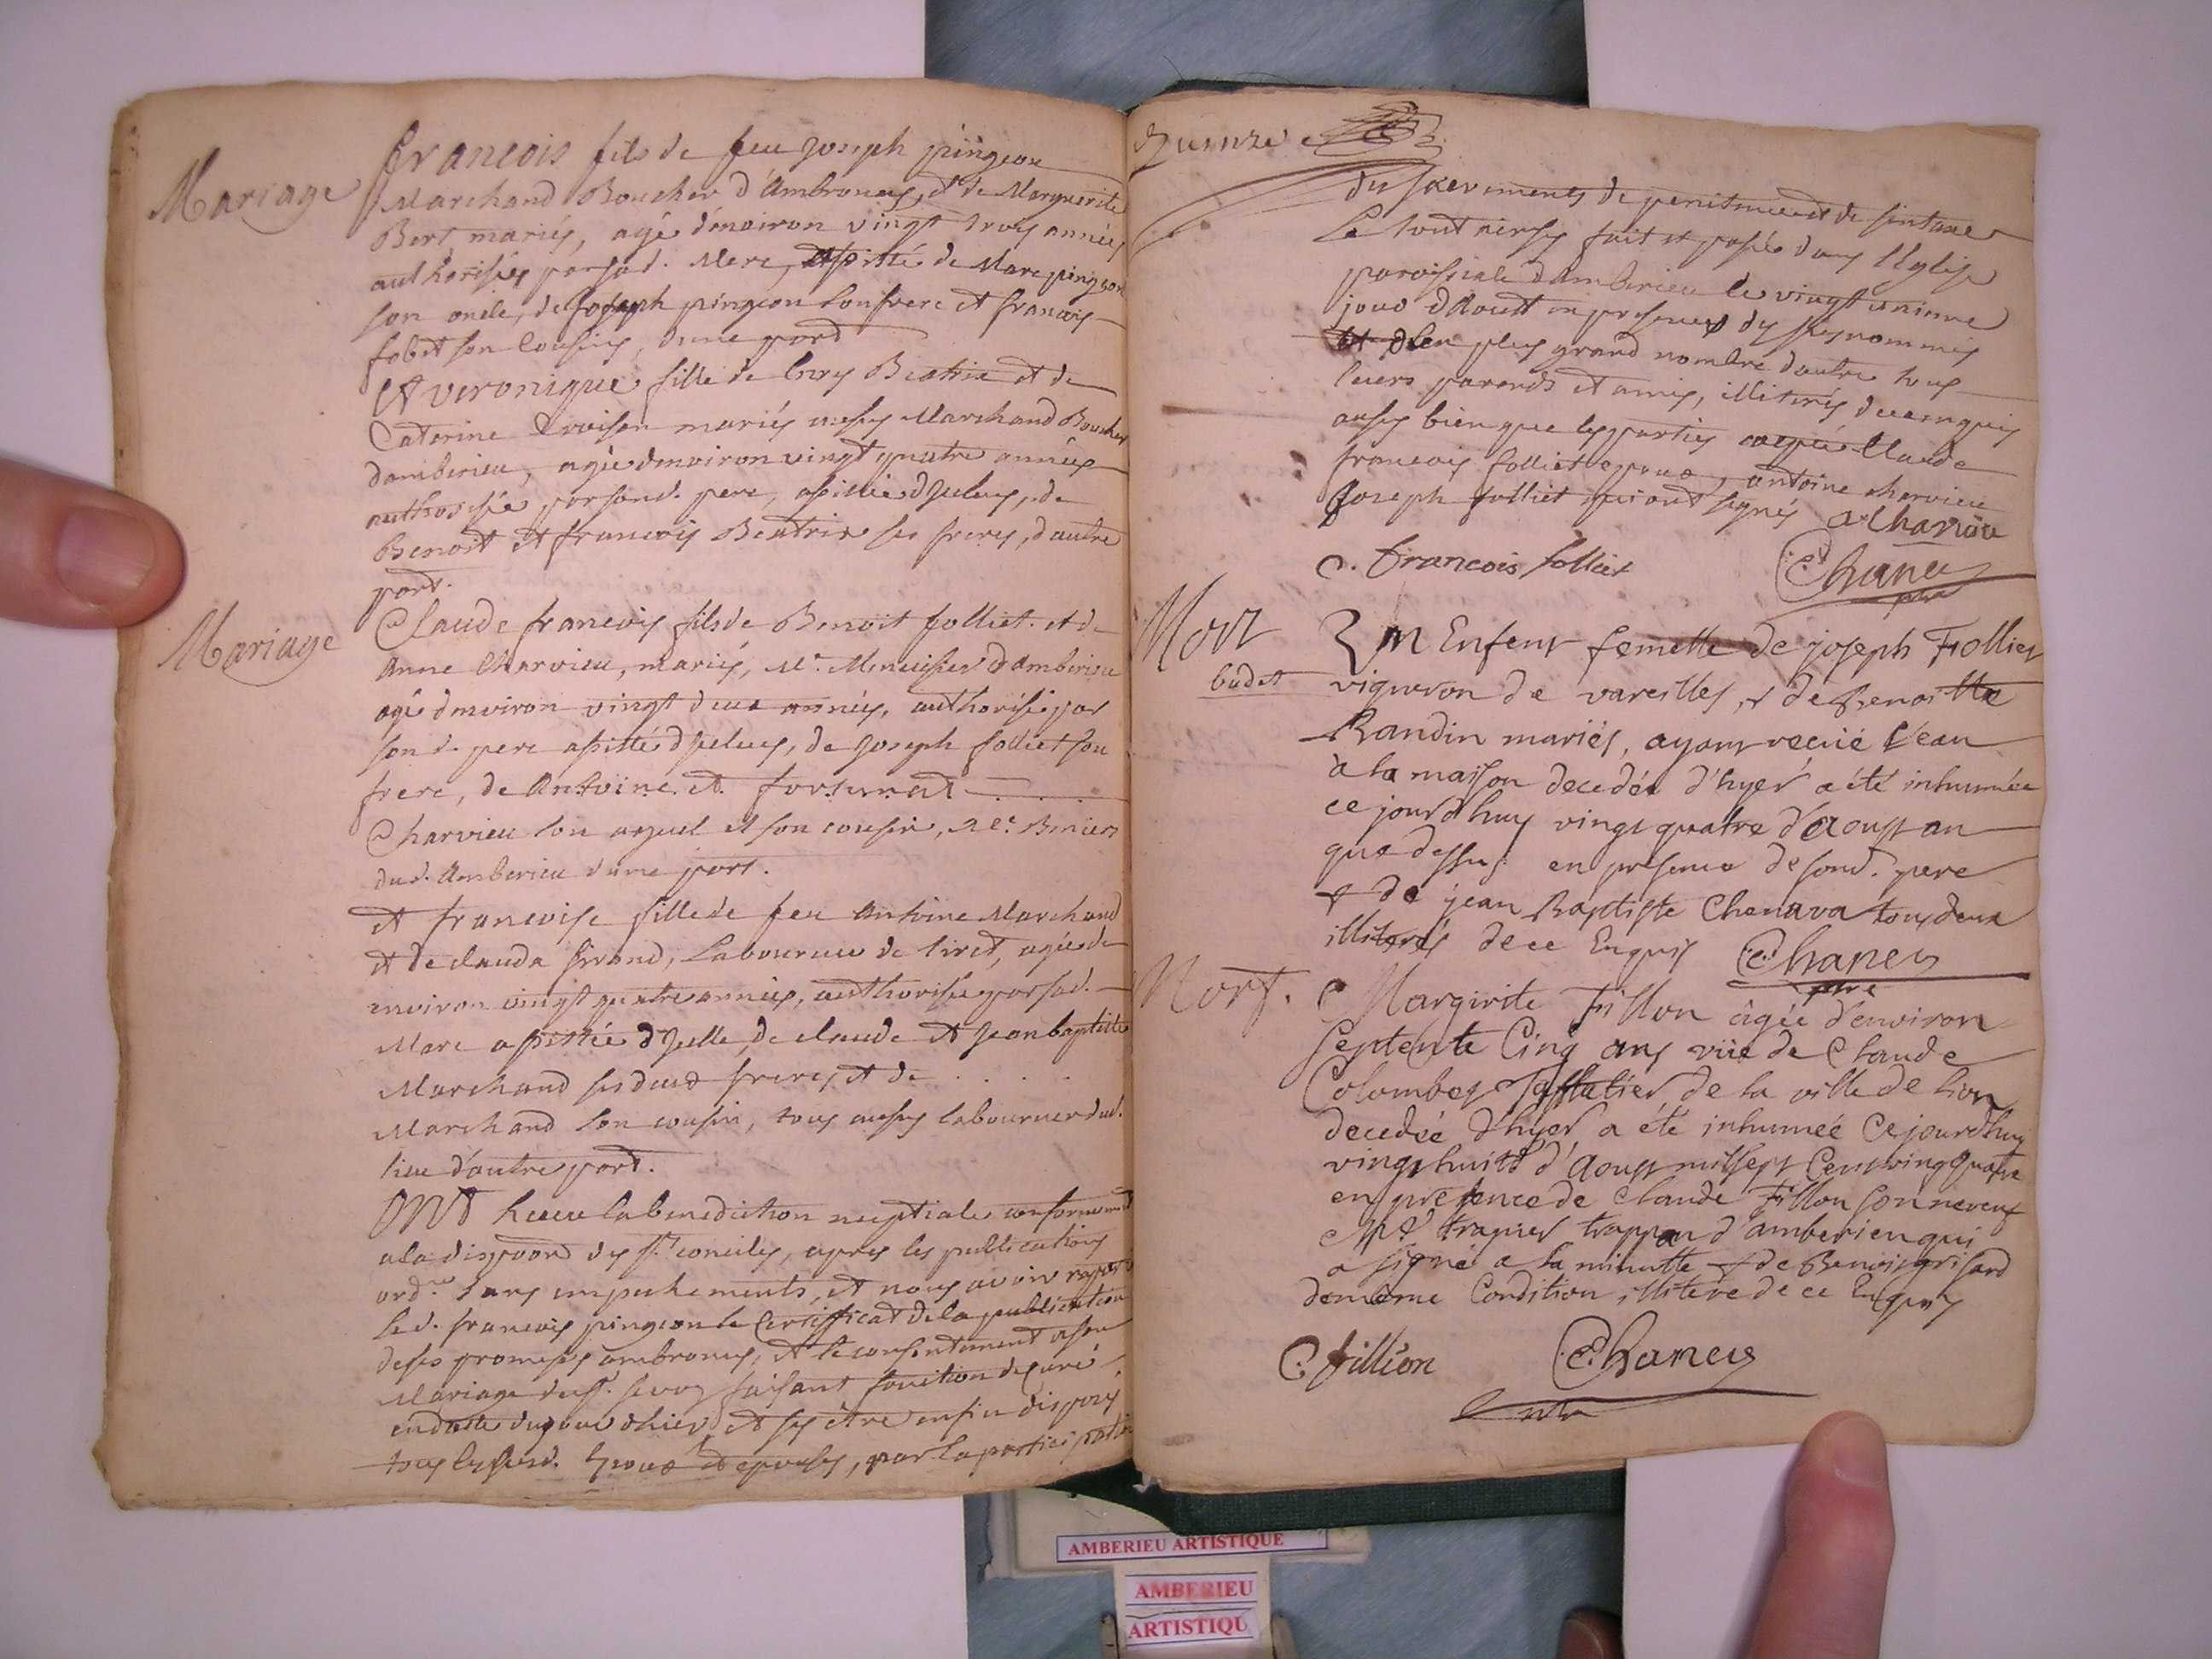 Mariage
francois fils de feu Joseph pingeon
Marchand Boucher d'Ambronay, et de Marguerite
Bert mariés, agé denviron vingt trois années
authorisée par sad. Mere, assisté de Marc pingeon
son oncle, de Joseph pingeon son frere et francois
son cousin, d'une part
Et veronique fille de Beatrix et de
Caterine mariés aussy Marchand Boucher
damberieu, agée denviron vingt quatre années
authorisée par sond. pere, assistée d'yceluy, de
Benoit et francois Beatrix ses freres, d'autre
part.
Mariage
Claude francois fils de Benoit folliet et de
Anne Charvieu, mariés, Me. Menuisier d'amberieu
agé denviron vingt deux années, authorisé par
sond. pere assisté d'yceluy, de Joseph folliet son
frere, de Antoine et fortunat
Charvieu son et son cousin,
dud. Amberieu d'une part.
et francoise fille de feu Antoine Marchand
et de clauda laboureur de tiret, agée de
environ vingt quatre années, authorisée par sad.
Mere assistée d'ycelle, de claude et Jean baptiste
Marchand ses deux freres, et de . . . .
Marchand son cousin, tous aussy laboureur dud.
lieu d'autre part.
ONT heceu la benediction nuptiale conformement
a la des Sts. conciles, apres les publications
ord.res sans empechements, et nous avoir
led. francois pingeon le Certifficat de la publication
de ses promesses ambronay, et le consentement a son
Mariage du Sr. faisant fonction de curé
en datte du jour d'hier et s'y etre enfin disposé
tous les susd. Epoux et epouses, par la participation
quinze
des sacrements de penitence et de
Le tout ainsy fait et passé dans l'Eglise
paroissiale d'amberieu le vingt unieme
jour d'Aoust en presence des susnommés
et d'un plus grand nombre d'autre tous
leurs parents et amis, illiterés de ce enquis
aussy bien que les parties excepté Claude
francois folliet epoux, antoine charvieu
Joseph folliet qui ont signés A Charvieu
C. francois folliet
Chaney
ptre
Mort
budet
Un Enfent femelle de joseph Folliet
vigneron de vareilles, & de Benoitte
Randin mariés, ayant receüe l'eau
a la maison decedée d'hyer a été inhumée
ce jourd'huy vingt quatre d'Aoust an
que dessus en presence de sond. pere
& de jean Baptiste Chenava tous deux
illiterés de ce Enquis Chaney
ptre
Mort.
Margirite Fillon âgée d'environ
septente Cinq ans de Claude
Colombet de la ville de Lion
decedée d'hyer a été inhumée Cejourd'huy
vingt huit d'Aoust mil sept Cent vingt quatre
en presence de Claude Fillon son neveuf
d'amberieu qui
a signé a la minutte & de Benoist grisard
de meme Condition illiteré de ce Enquis
C. fillion
Chaney
ptre
AMBERIEU ARTISTIQUE
AMBERIEU
ARTISTIQU